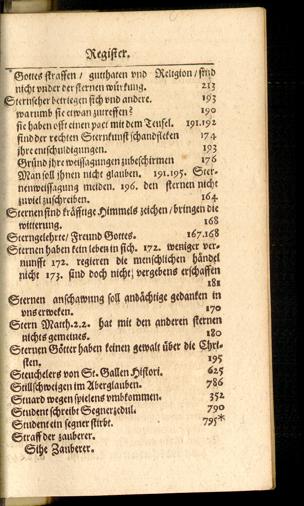 Register.
Gottes straffen / gutthaten vnd Religion / sind
nicht vnder der sternen würkung. 213
Sternseher betriegen sich vnd andere. 193
warumb sie etwan zutreffen? 190
sie haben offt einen pact mit dem Teufel. 191.192
sind der rechten Sternkunst schandflecken 174
jhre entschuldigungen. 193
Gründ jhre weissagungen zubeschirmen 176
Man soll jhnen nicht glauben. 191.195. Ster-
nenweissagung meiden. 196. den sternen nicht
zuviel zuschreiben. 164
Sternen sind kräfftige Himmels zeichen / bringen die
witterung. 168
Sterngelehrte / Freund Gottes. 167.168
Sternen haben kein leben in sich. 172. weniger ver-
nunfft 172. regieren die menschlichen händel
nicht 173. sind doch nicht vergebens erschaffen
181
Sternen anschawung soll andächtige gedancken in
vns erweken. 170
Stern Matth.2.2. hat mit den anderen sternen
nichts gemeines. 180
Sternen Götter haben keinen gewalt über die Chri-
sten. 195
Steuchelers von St. Gallen Histori. 625
Stillschweigen im Aberglauben. 786
Stuard wegen spielens vmbkommen. 352
Student schreibt Segnerzedul. 790
Student ein segner stirbt. 795*
Straff der zauberer.
Sihe Zauberer.